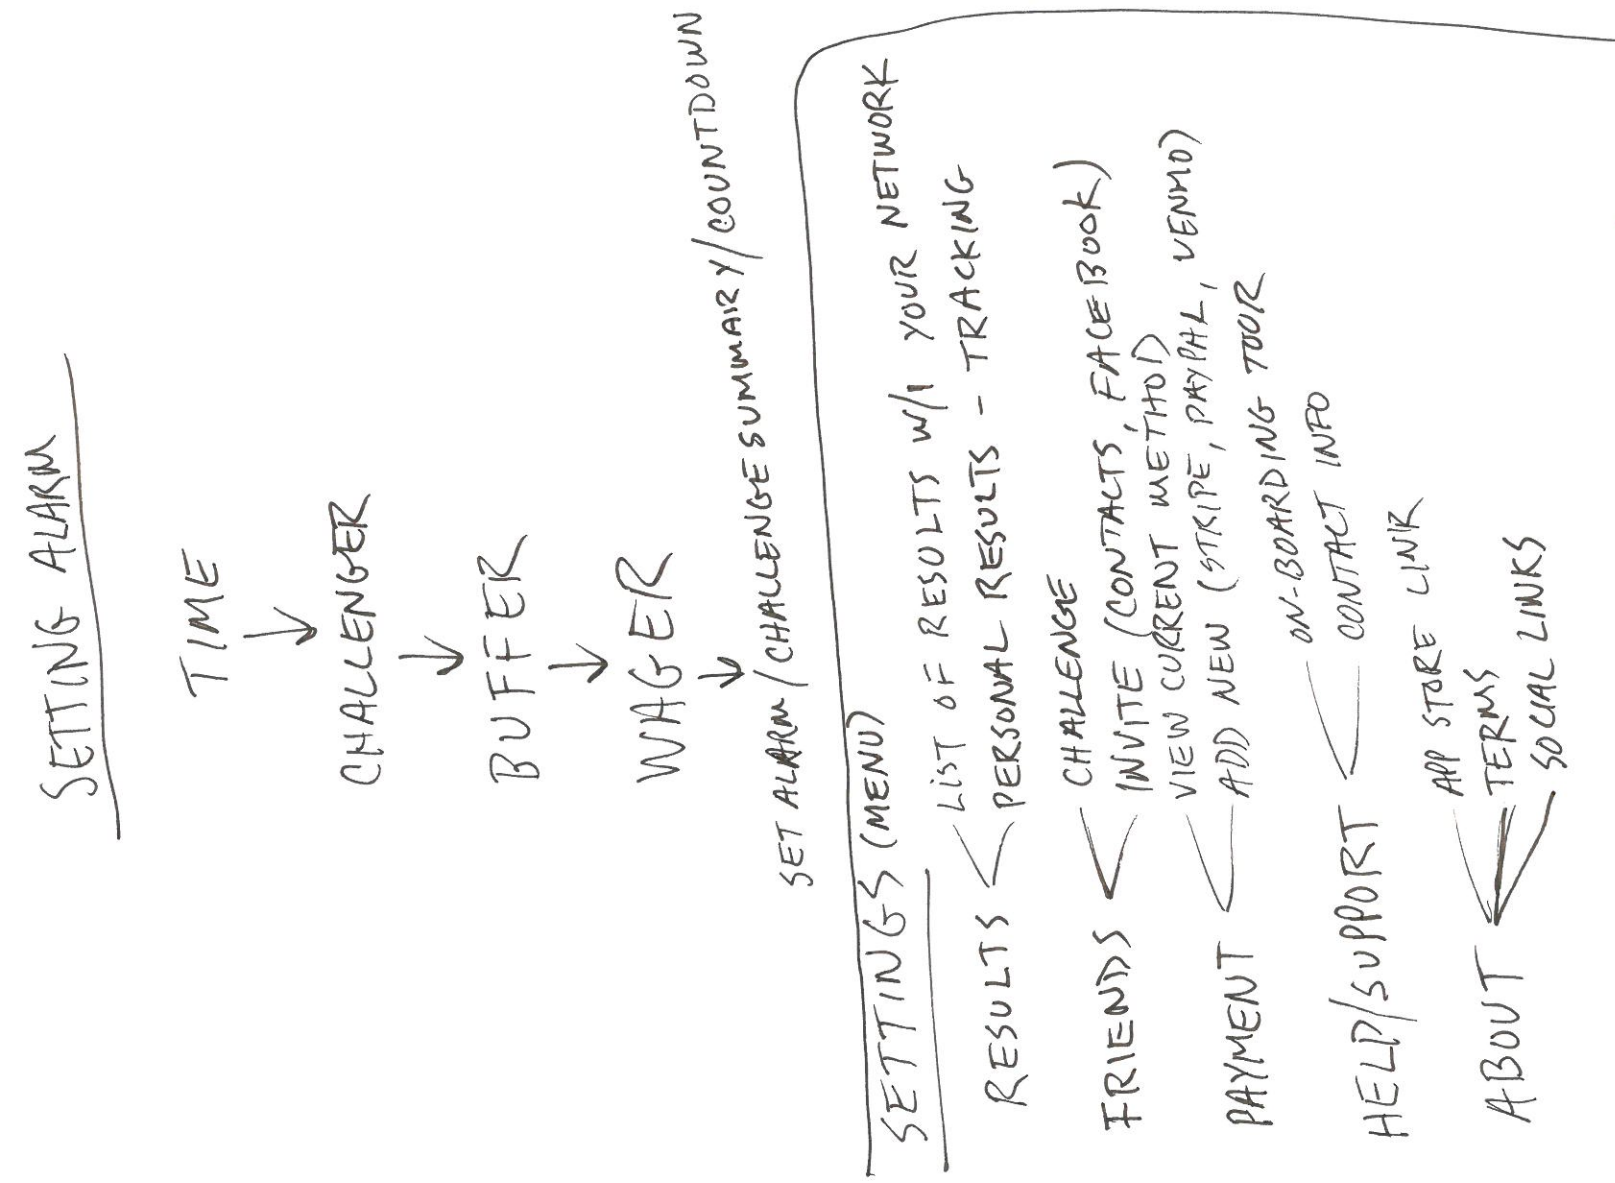 SETTING ALARM
TIME
CHALLENGER
BUFFER
WAGER
SET ALARM / CHALLENGE SUMMARY / COUNTDOWN
SETTINGS (MENU)
RESULTS
LIST OF RESULTS W/I YOUR NETWORK
PERSONAL RESULTS - TRACKING
FRIENDS
CHALLENGE
INVITE (CONTACTS, FACEBOOK)
PAYMENT
VIEW CURRENT METHOD
ADD NEW (STRIPE, PAYPAL, VENMO)
HELP/SUPPORT
ON-BOARDING TOUR
CONTACT INFO
ABOUT
APP STORE LINK
TERMS
SOCIAL LINKS